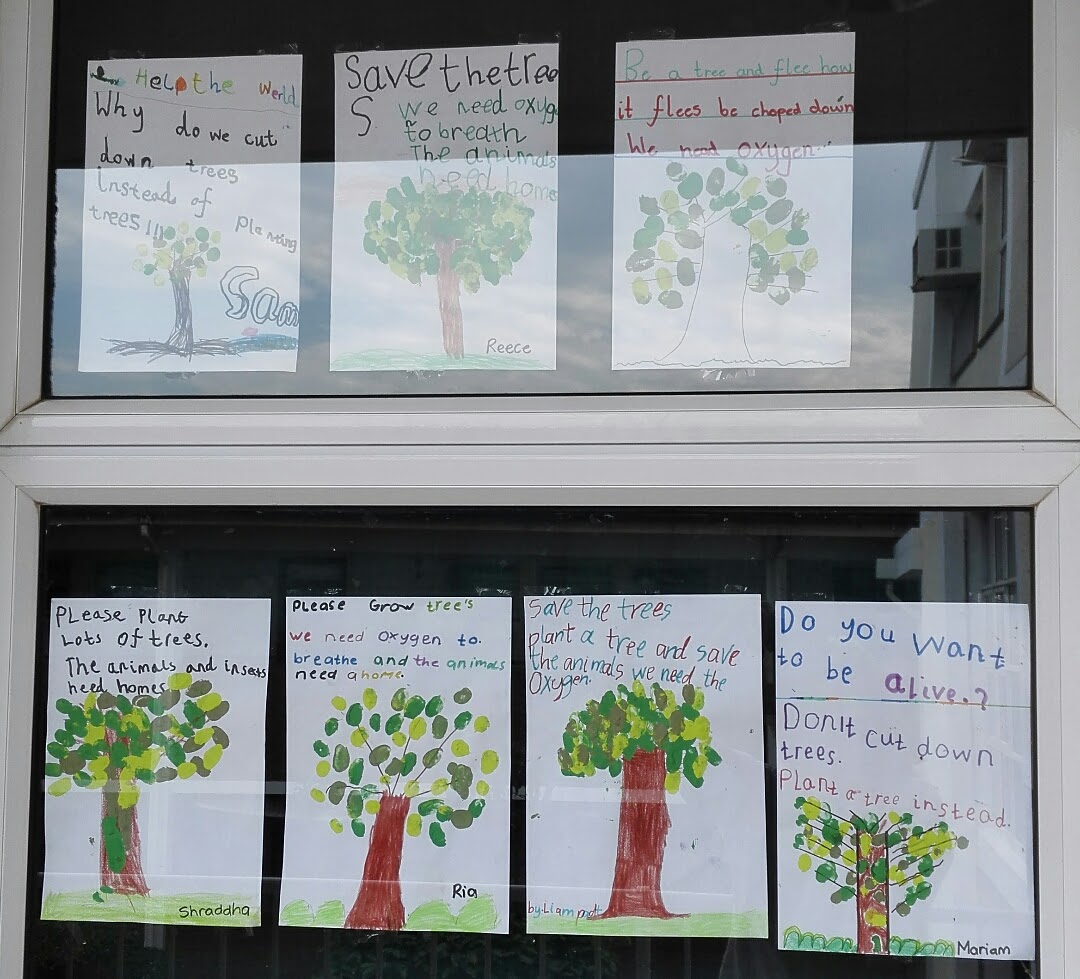 Help the Werld
Why do we cut
down trees
instead of
Planting
trees!!!
Sam
Save the tree
S
We need oxyge
to breath
The animals
need home
Reece
Be a tree and flee how
it flees be choped down
We need oxygen
PLease Plant
Lots of trees.
The animals and insects
need homes
Shraddha
Please Grow tree's
we need oxygen to.
breathe and the animals
need a home.
Ria
Save the trees
plant a tree and save
the animals we need the
Oxygen.
by Liam
Do you want
to be alive.?
Don't cut down
trees.
Plant a tree instead.
Mariam